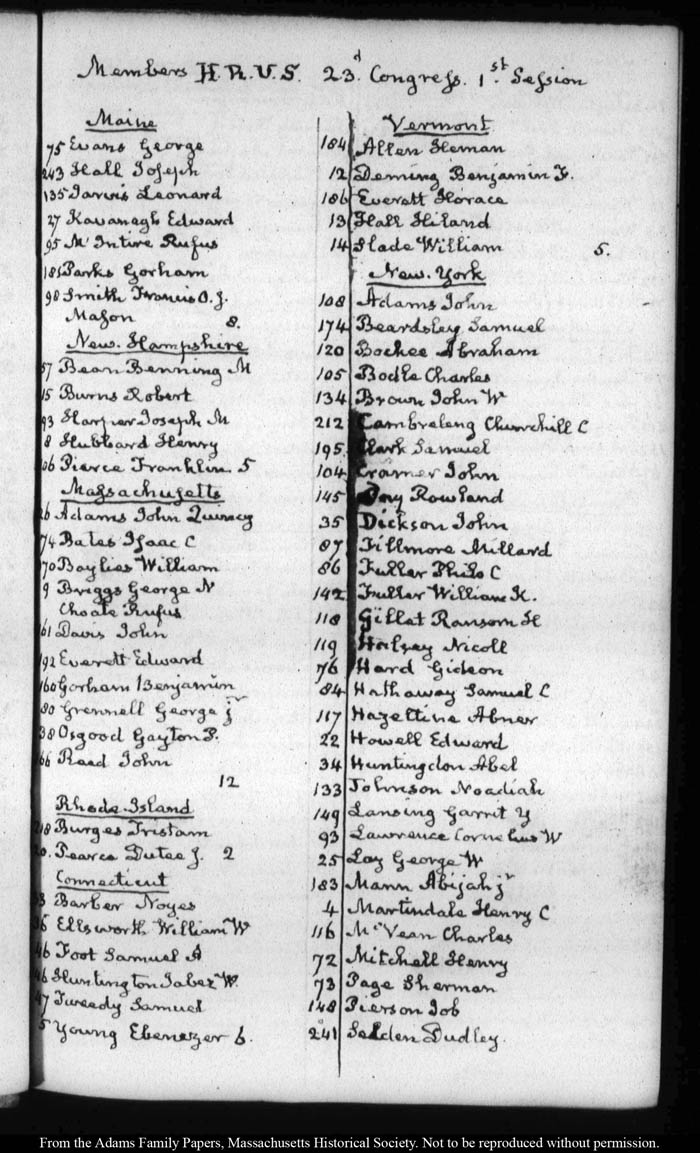 Members H.R.U.S. 23.d Congress. 1.st Session
Maine
75 Evans George
243 Hall Joseph
135 Jarvis Leonard
27 Kavanagh Edward
95 Mc Intire Rufus
181 Parks Gorham
98 Smith Francis O. J.
Mason 8.
New. Hampshire
57 Bean Benning M
15 Burns Robert
93 Harper Joseph M
8 Hubbard Henry
06 Pierce Franklin 5
Massachusetts
26 Adams John Quincy
74 Bates Isaac C
70 Baylies William
9 Briggs George N
Choate Rufus
161 Davis John
192 Everett Edward
160 Gorham Benjamin
80 Grennell George jr
38 Osgood Gayton P.
66 Reed John
12
Rhode. Island
218 Burges Tristam
20. Pearce Dutee J. 2
Connecticut
Barber Noyes
36 Ellsworth William W
46 Foot Samuel A
46 Huntington Jabez W.
47 Tweedy Samuel
5 Young Ebenezer 6.
Vermont
184 Allen Heman
12 Deming Benjamin F.
186 Everett Horace
13 Hall Hiland
14 Slade William 5.
New. York
108 Adams John
174 Beardsley Samuel
120 Bockee Abraham
105 Bodle Charles
134 Brown John W
212 Cambreleng Churchill C
195 Clark Samuel
104 Cramer John
145 Day Rowland
35 Dickson John
87 Fillmore Millard
86 Fuller Philo C
142 Fuller William K.
118 Gillet Ransom H
119 Halsey Nicoll
76 Hard Gideon
84 Hathaway Samuel C
117 Hazeltine Abner
22 Howell Edward
34 Huntingdon Abel
133 Johnson Noadiah
149 Lansing Garrit Y
93 Lawrence Cornelius W
25 Lay George W
183 Mann Abijah jr
4 Martindale Henry C
116 Mc Vean Charles
72 Mitchell Henry
73 Page Sherman
148 Pierson Job
241 Selden Dudley.
From the Adams Family Papers, Massachusetts Historical Society. Not to be reproduced without permission.